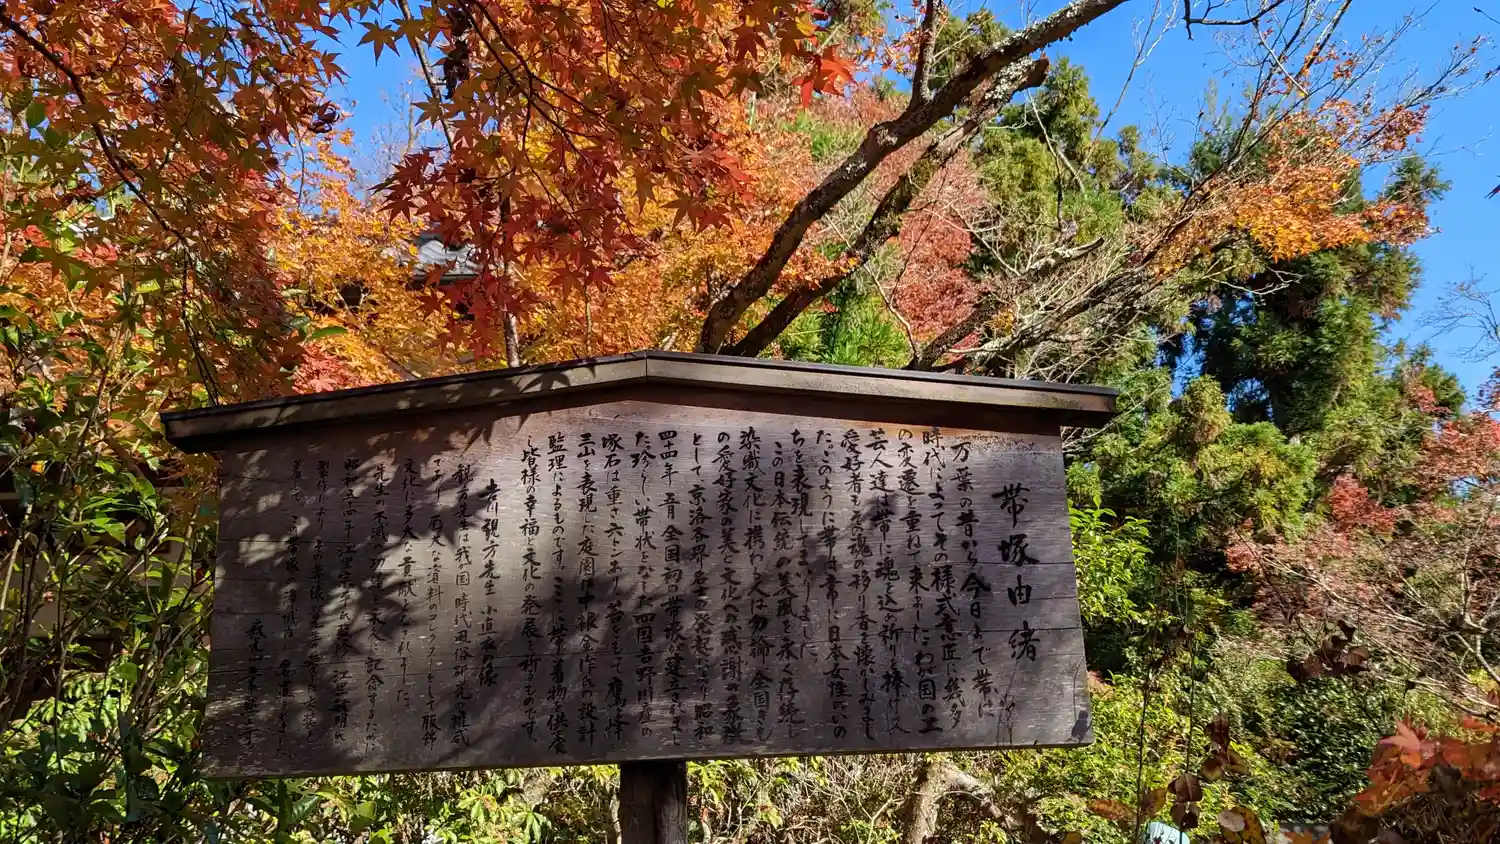 帯塚由緒
万葉の昔から今日まで帯は
時代によってその様式意匠に幾多
の変遷を重ねて来ました わが国の工
芸人達は帯に魂を込め祈りを捧げ
愛好者も
た。このように帯は常に日本女性の
ちを表現してまいりました。
この日本伝統の美風を永く伝統し
染織文化に携わる人は勿論 全国きもの
の愛好家の美と文化への感謝の
として 京洛各界名士の発起により昭和
四十四年 五月 全国初の帯塚が建立されまし
た 珍らしい帯状をなした四国吉野川産の
塚石は重さ六トンあり 苔をもって鷹ヶ峰
三山を表現した庭園は中根金作氏の設計
監理によるものです。ここに帯 着物を供養
し皆様の幸福と文化の発展を祈るものです。
吉川観方先生 小直衣の像
観方先生は我国 時代風俗研究の権威
であり 厖大な資料のコレクターとして服飾
文化に多大な貢献をされました。
先生の不滅の功績を永久に記念するために
昭和五四年 江里